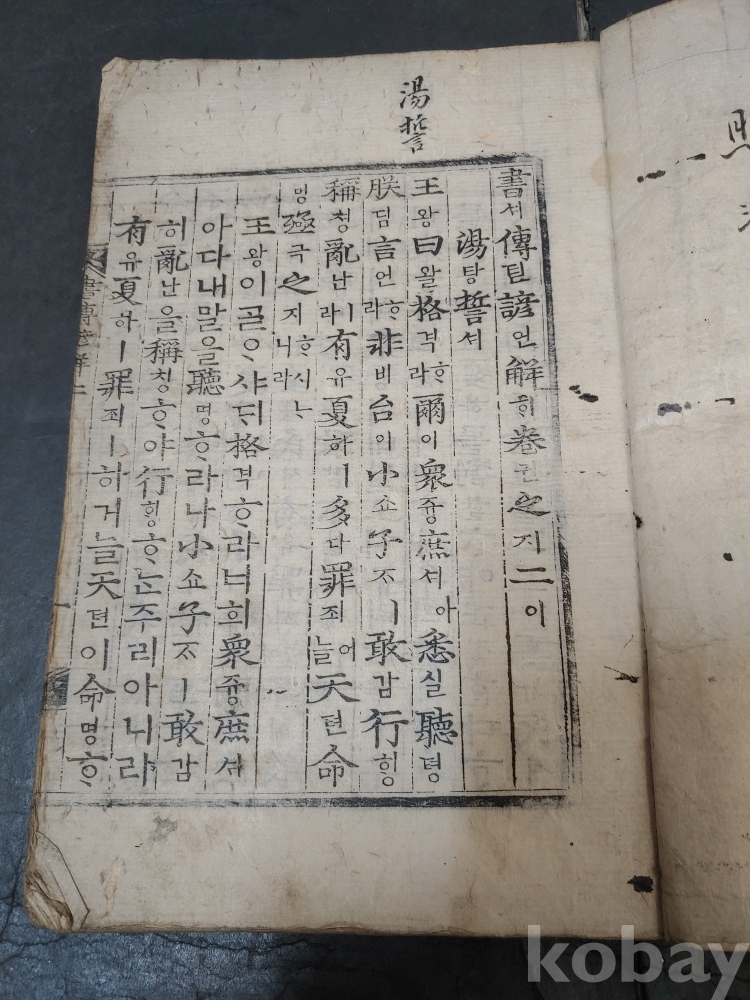 湯誓
書셔傳뎐諺언解ᄒᆡ卷권之지二이
湯탕誓셔
王왕曰왈格격ᄒᆞ라爾이衆즁庶셔아悉실聽텽
朕딤言언ᄒᆞ라非비台이小쇼子ᄌᆞㅣ敢감行ᄒᆡᆼ
稱칭亂난ㅣ라有유夏하ㅣ多다罪죄어늘天텬命
명殛극之지ᄒᆞ시ᄂᆞ니라
王왕이ᄀᆞᆯᄋᆞ샤ᄃᆡ格격ᄒᆞ라너희衆즁庶셔
아다내말을聽텽ᄒᆞ라나小쇼子ᄌᆞㅣ敢감
히亂난을稱칭ᄒᆞ야行ᄒᆡᆼᄒᆞ논주리아니라
有유夏하ㅣ罪죄ㅣ하거늘天텬이命명ᄒᆞ
書傳諺解 二
kobay